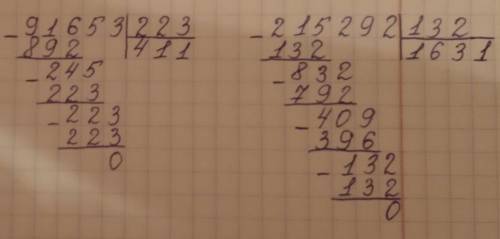 - 91653 | 223
892 | 411
- 245
223
- 223
223
0
- 215292 | 132
132 | 1631
- 832
792
- 409
396
- 132
132
0